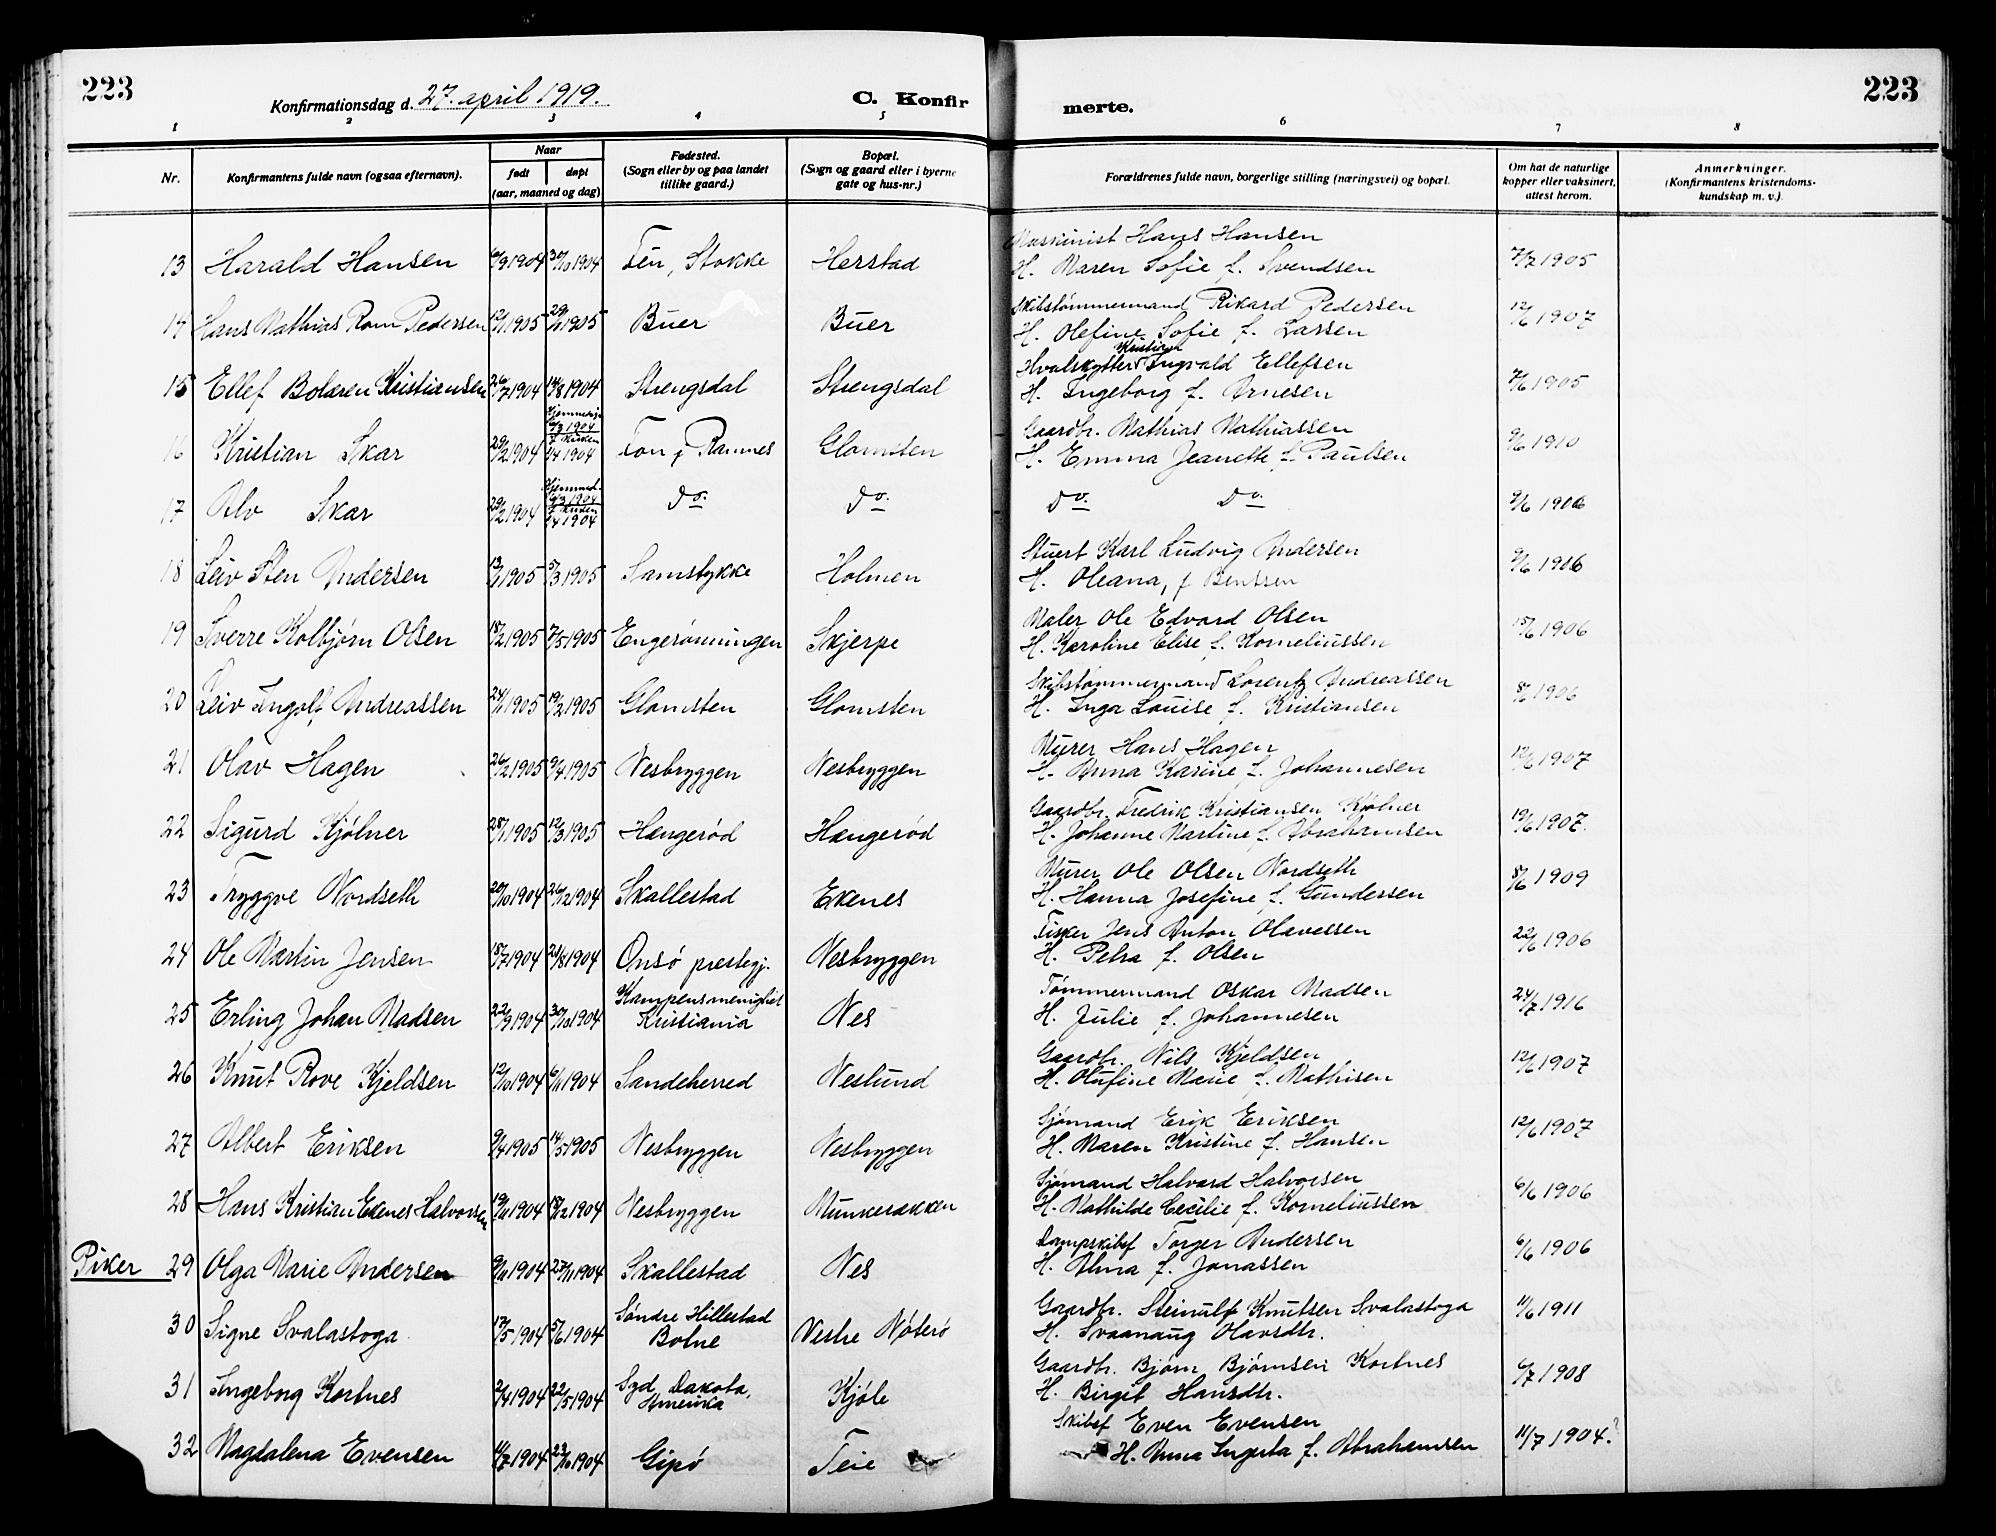 223
Konfirmationsdag d. 27. april 1919.
C. Konfir
merte.
223
1 2 3 4 5 6 7 8
Nr.
Konfirmantens fulde navn (ogsaa efternavn).
Naar
født
døpt
(aar, maaned og dag)
Fødested.
(Sogn eller by og paa landet
tillike gaard.)
Bopæl.
(Sogn og gaard eller i byerne
gate og hus-nr.)
Forældrenes fulde navn, borgerlige stilling (næringsvei) og bopæl.
Om hat de naturlige
kopper eller vaksinert,
attest herom.
Anmerkninger.
(Konfirmantens kristendoms-
kundskap m. v.).
Maskinist Hans Hansen
13 Harald Hansen 6/9 1904 30/10 1904 Fèn, Stokke Herstad H. Maren Sofie f. Svendsen 7/7 1905
Skibstømmermand Rikard Pedersen
14 Hans Mathias Rom Pedersen 12/1 1905 29/1 1905 Buer Buer H. Olefine Sofie f. Larsen 12/6 1907
Kristian
Hvalskytter Ingvald Ellefsen
15 Ellef Bolæren Kristiansen 26/7 1904 14/8 1904 Strengsdal Strengsdal H. Ingeborg f. Arnesen 7/6 1905
Gaardbr. Mathias Mathiassen
16 Kristian Skar 29/2 1904 Hjemmedp. 6/3 1904 f. kirken 1/4 1904 Fon, Ramnes Glomsten H. Emma Jeanette f. Paulsen 9/6 1910
17 Alv Skar 29/2 1904 Hjemmed. 6/3 1904 f. kirken 1/4 1904 do. do. do. do. 9/6 1906
Stuert Karl Ludvig Andersen
18 Leiv Sten Andersen 13/1 1905 5/3 1905 Samstykke Holmen H. Oleana, f Bentsen 9/6 1906
Maler Ole Edvard Olsen
19 Sverre Kolbjørn Olsen 18/2 1905 7/5 1905 Engerønningen Skjerpe H. Karoline Elise f. Korneliussen 15/6 1906
Skibstømmermand Lorentz Andreassen
20 Leiv Ingolf Andreassen 24/1 1905 19/2 1905 Glomsten Glomsten H. Inga Louise f. Kristiansen 8/6 1906
Murer Hans Hagen
21 Olav Hagen 26/2 1905 9/4 1905 Nesbryggen Nesbryggen H. Anna Karine f. Johannesen 12/6 1907
Gaardbr. Fredrik Kristiansen Kjølner
22 Sigurd Kjølner 28/1 1905 12/3 1905 Hængerød Hængerød H. Johanne Martine f. Abrahamsen 19/6 1907.
Murer Ole Olsen Nordseth
23 Tryggve Nordseth 20/10 1904 26/12 1904 Skallestad Ekenes H. Hanna Josefine f. Gundersen 8/6 1909
Fisker Jens Anton Olavessen
24 Ole Martin Jensen 15/7 1904 21/8 1904 Onsø prestegj. Nesbryggen H. Petra f. Olsen 22/6 1906
Tømmermand Oskar Madsen
25 Erling Johan Madsen 22/9 1904 30/10 1904 Kampens menighet Kristiania Nes H. Julie f. Johannesen 24/7 1916
Gaardbr. Nils Kjeldsen
26 Knut Rove Kjeldsen 12/10 1904 6/11 1904 Sandeherred Neslund H. Olufine Marie f. Mathisen 12/6 1907
Sjømand Erik Eriksen
27 Albert Eriksen 9/4 1905 14/5 1905 Nesbryggen Nesbryggen H. Maren Kristine f. Hansen 12/6 1907
Sjømand Halvard Halvorsen
28 Hans Kristian Ekenes Halvorsen 19/11 1904 18/12 1904 Nesbryggen Munkerækken H. Mathilde Cecilie f. Korneliussen 6/6 1906
Dampskibsf Torger Andersen
Piker 29 Olga Marie Andersen 9/11 1904 27/11 1904 Skallestad Nes H. Alma f. Jonassen 6/6 1906
Gaardbr. Steinulf Knutsen Svalastoga
30 Signe Svalastoga 17/5 1904 5/6 1904 Søndre Hillestad Botne Vestre Nøterø H. Svaanaug Olavsdtr. 11/6 1911
Gaardbr. Bjørn Bjørnsen Kortnes
31 Ingeborg Kortnes 2/4 1904 22/5 1904 Syd Dakota, Amerika Kjøle H. Birgit Hansdtr. 6/7 1908
Skibsf Even Evensen
32 Magdalena Evensen 11/7 1904 23/10 1904 Gipø Teie H. Anna Ingerta f. Abrahamsen 11/7 1904?